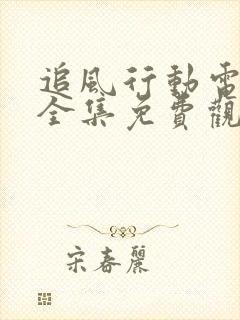 追風行動電
全集免費觀
宋春麗